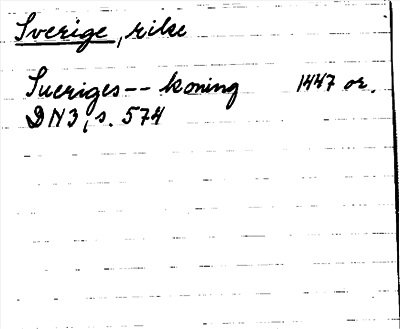 Sverige, rike
Sueriges -- koning 1447 or.
DN3, s. 574